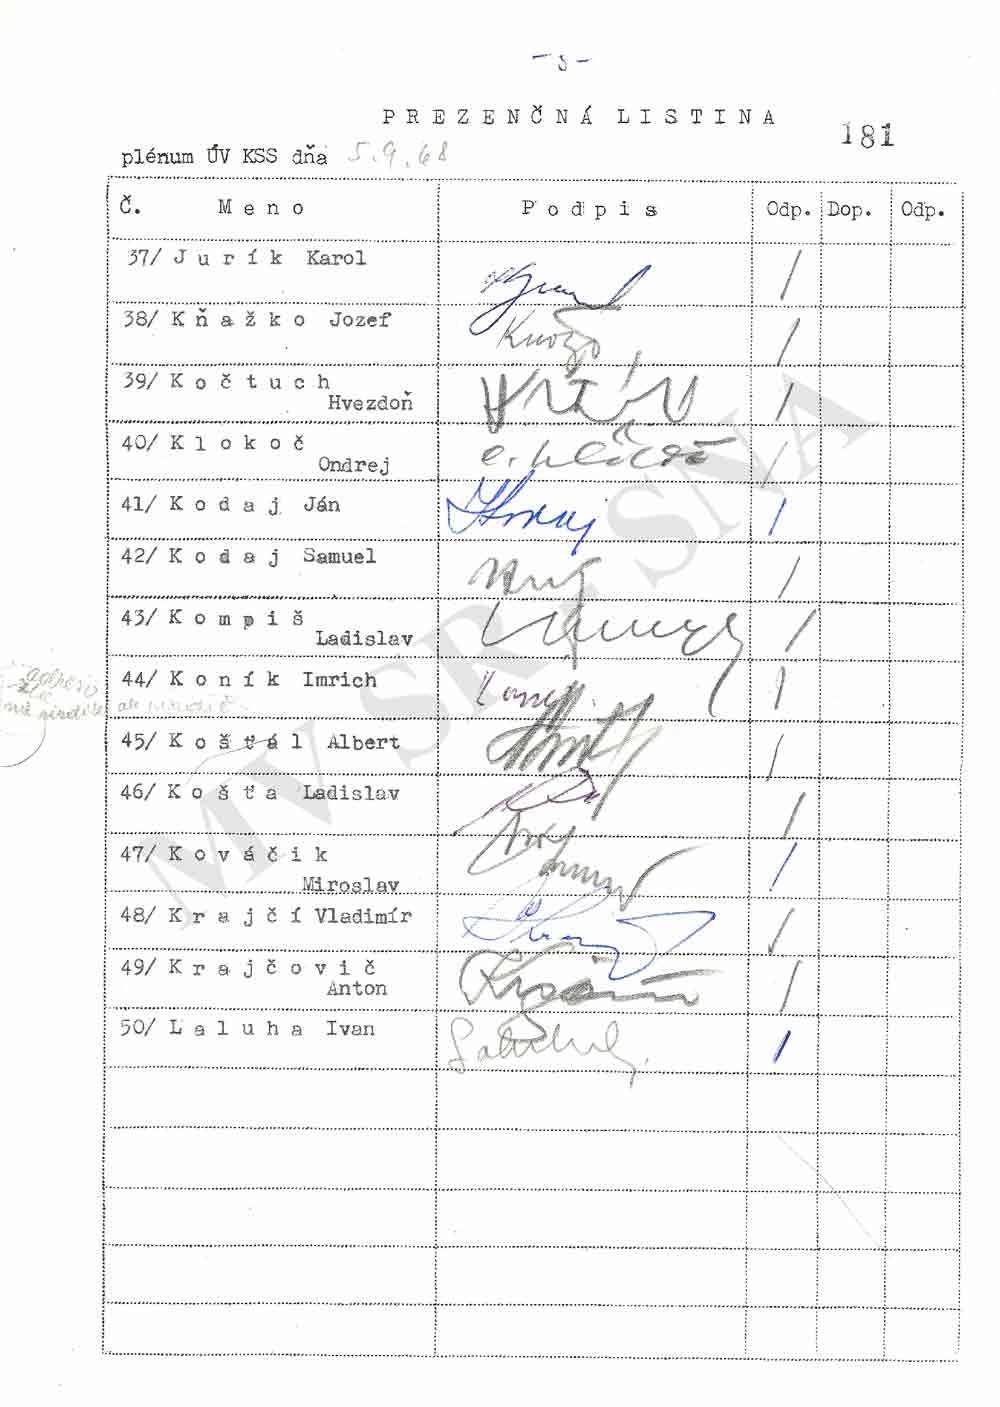 P R E Z E N Č N Á L I S T I N A
181
plénum ÚV KSS dňa 5.9.68
Č. M e n o P o d p i s Odp. Dop. Odp.
37/ J u r í k Karol
38/ K ň a ž k o Jozef
39/ K o č t u c h
Hvezdoň
40/ K l o k o č
Ondrej
41/ K o d a j Ján
42/ K o d a j Samuel
43/ K o m p i š
Ladislav
44/ K o n í k Imrich
45/ K o š ť á l Albert
46/ K o š ť a Ladislav
47/ K o v á č i k
Miroslav
48/ K r a j č í Vladimír
49/ K r a j č o v i č
Anton
50/ L a l u h a Ivan
MV SR - SNA